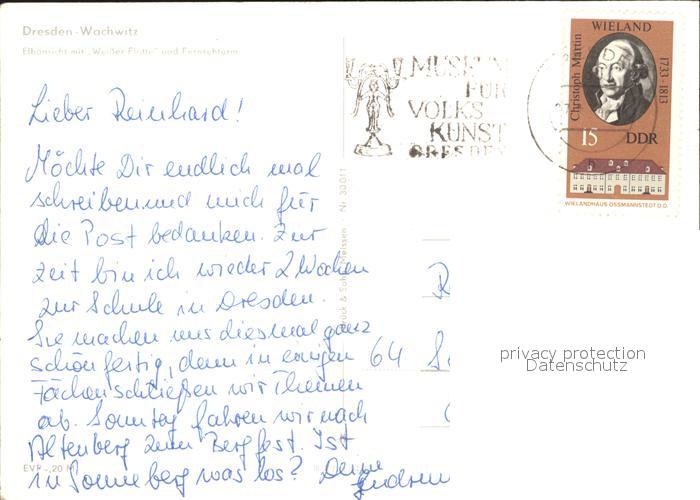 Dresden - Wachwitz
Elbansicht mit „Weißer Flotte“ und Fernsehturm
Lieber Reinhard!
Möchte Dir endlich mal
schreiben und mich für
die Post bedanken. Zur
Zeit bin ich wieder 2 Wochen
zur Schule in Dresden.
Sie machen uns diesmal ganz
schön fertig, denn in einigen
Fächern schließen wir Themen
ab. Sonntag fahren wir nach
Altenberg zum Bergfest. Ist
in Sonneberg was los? Deine
EVP -,20 M
Meissen Nr 30 011
MUSEUM
FÜR
VOLKS
KUNST
DRESDEN
WIELAND
Christoph Martin
1733 - 1813
15 DDR
WIELANDHAUS OSSMANNSTEDT
R
64 S
privacy protection
Datenschutz